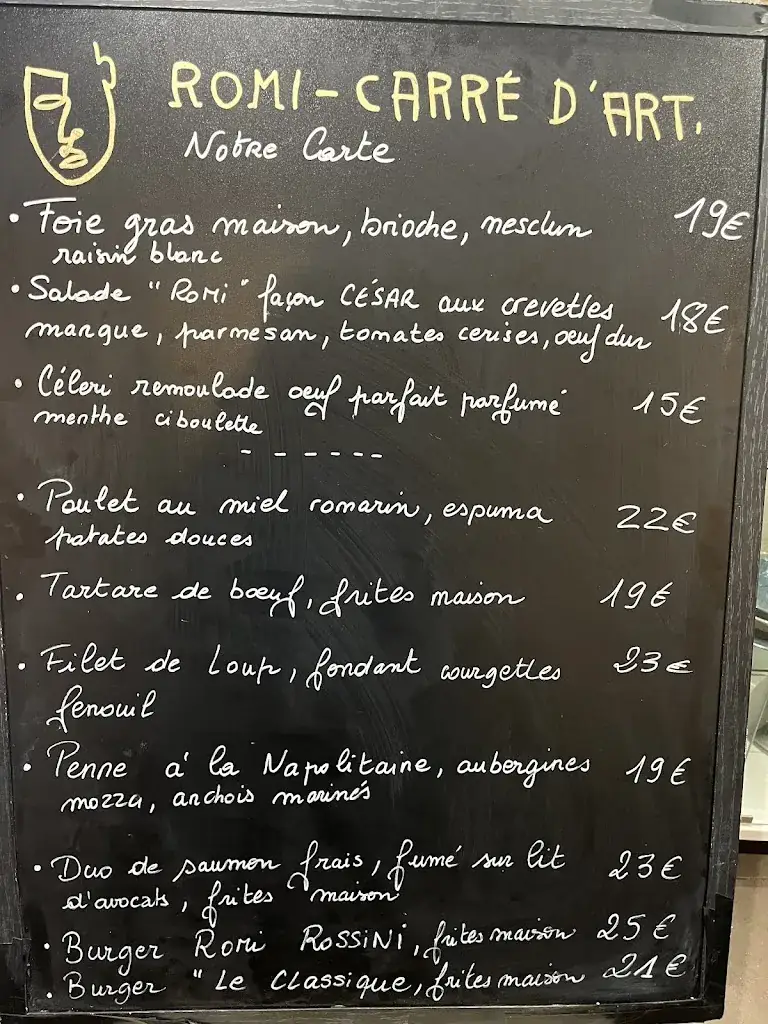 ROMI-CARRÉ D'ART.
Notre Carte
• Foie gras maison, brioche, mesclun 19€
raisin blanc
• Salade "Romi" façon CÉSAR aux crevettes 18€
mangue, parmesan, tomates cerises, oeuf dur
• Céleri remoulade oeuf parfait parfumé 15€
menthe ciboulette
- - - - - -
• Poulet au miel romarin, espuma 22€
patates douces
• Tartare de bœuf, frites maison 19€
• Filet de Loup, fondant courgettes 23€
fenouil
• Penne à la Napolitaine, aubergines 19€
mozza, anchois marinés
• Duo de saumon frais, fumé sur lit 23€
d'avocats, frites maison
• Burger Romi ROSSINI, frites maison 25€
• Burger "Le Classique, frites maison 21€